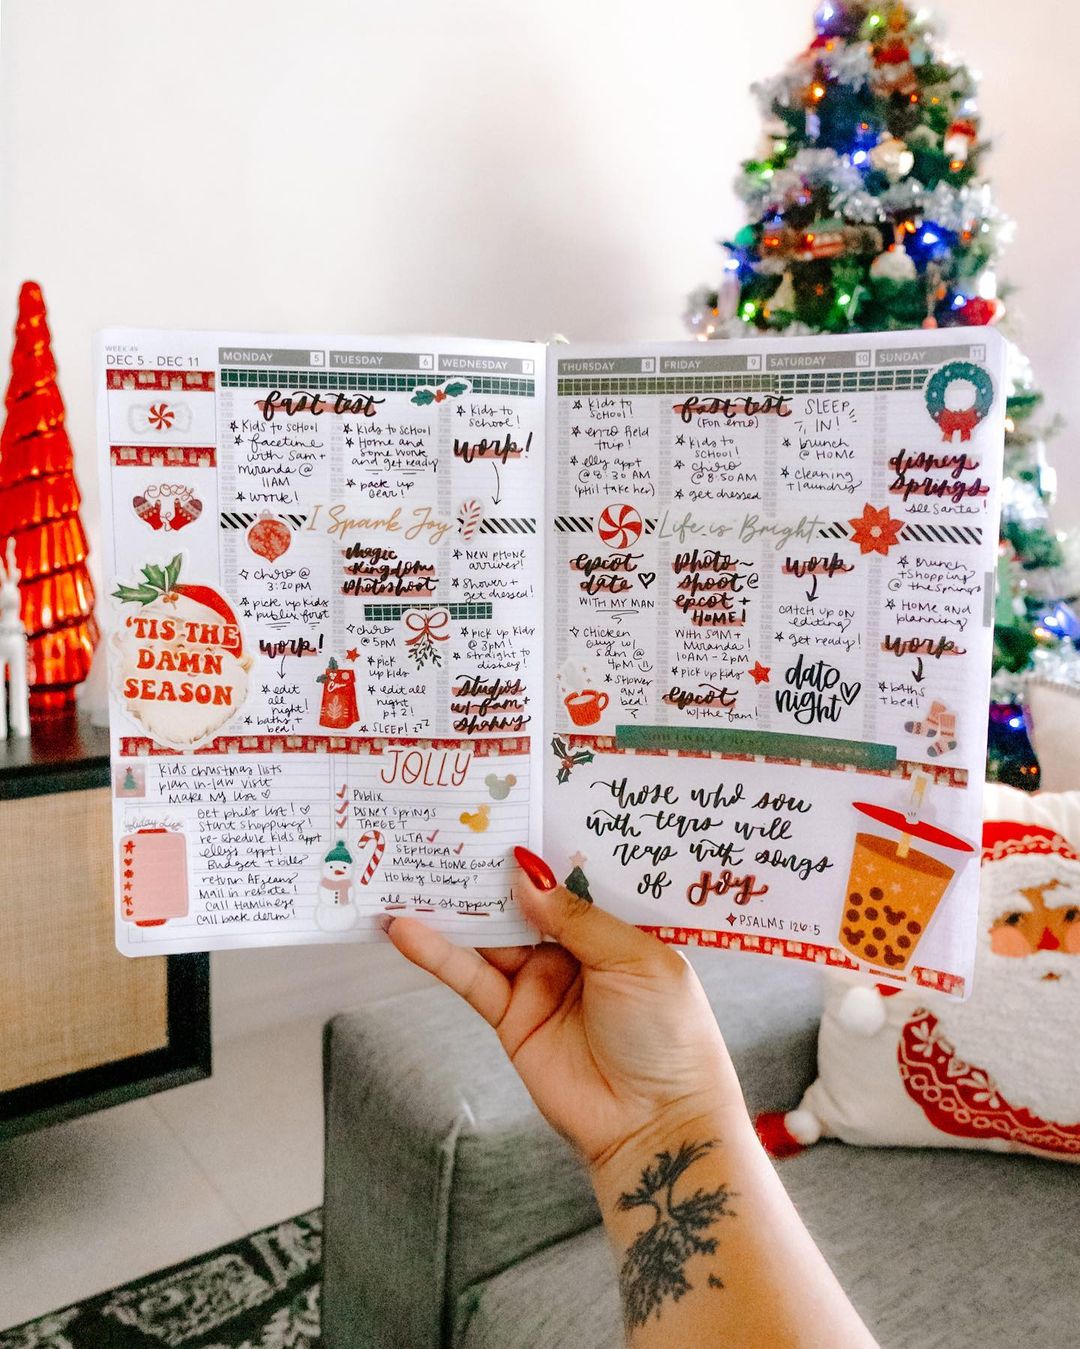 WEEK 49
DEC 5 - DEC 11
COZY
'TIS THE
DAMN
SEASON
Kids Christmas lists
plan in-law visit
Make my list ♡
Holiday Luxe
Get phil's list! ♡
Start shopping!
re-schedule kids appt
ellys appt!
Budget + bills
return AF jeans
Mail in rebate!
Call Hamlineye
Call back derm!
MONDAY 5
fast test
☆ Kids to school
☆ facetime
with Sam +
Miranda @
11AM
☆ work!
I Spark Joy
✧ chiro @
3:20PM
☆ pick up kids
☆ publix first
work!
☆ edit
all
night!
☆ baths +
bed!
TUESDAY 6
☆ Kids to school
☆ Home and
some work
and get ready
☆ pack up
gear!
magic
kingdom
photoshoot
✧ chiro
@ 5PM
☆ pick
up kids
☆ edit all
night
pt 2!
☆ SLEEP! zzz
WEDNESDAY 7
☆ Kids to
school!
work!
☆ NEW PHONE
arrives!
☆ Shower +
get dressed!
☆ pick up kids
@ 3PM!
☆ straight to
disney!
studios
w/ fam +
shanny
JOLLY
✓ Publix
✓ Disney Springs
✓ TARGET
ULTA ✓
SEPHORA ✓
Maybe Home Goods
Hobby Lobby?
all the shopping!
THURSDAY 8
☆ Kids to
SCHOOL!
☆ enzo field
trip!
☆ elly appt
@ 8:30 AM
(phil take her)
epcot
date ♡
WITH MY MAN
✧ CHICKEN
Guy w/
Sam @
4PM
☆ SHOWER
and
bed!
FRIDAY 9
fast test
(For enzo)
☆ Kids to
SCHOOL!
☆ chiro
@ 8:50AM
☆ get dressed
Life is Bright
photo~
shoot @
epcot +
HOME!
WITH SAM +
Miranda!
10AM - 2PM
☆ pick up kids
epcot
w/ the fam!
SATURDAY 10
SLEEP
IN!
☆ brunch
@ Home
☆ cleaning
+ laundry
work
CATCH UP ON
editing
☆ get ready!
date
night ♡
SUNDAY 11
disney
springs
see Santa!
☆ Brunch
+ Shopping
@ the Springs
☆ HOME and
planning
work
☆ baths
+ bed!
those who sow
with tears will
reap with songs
of JOY
✦ PSALMS 126:5